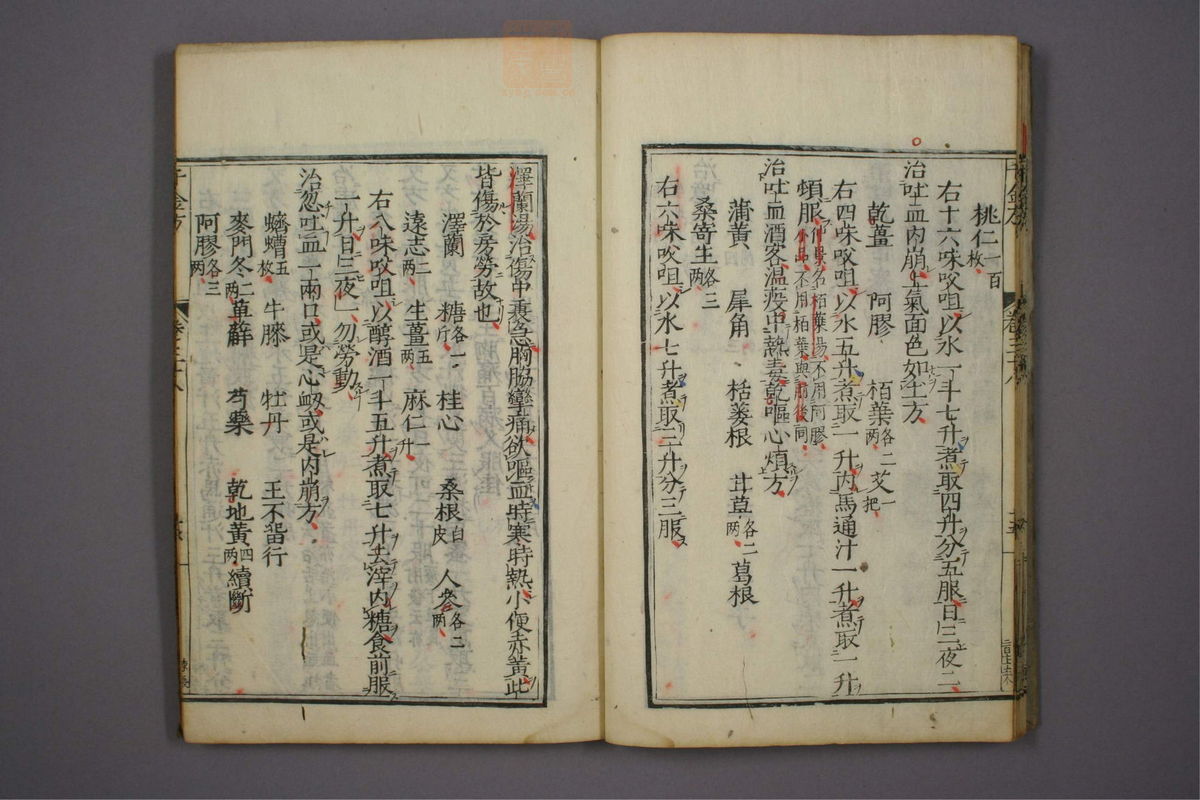 桃仁一百枚
右十六味㕮咀以水一斗七升煮取四升分五服日三夜二
治吐血內崩上氣面色如土方
乾薑 阿膠 栢葉各二两 艾一把
右四味㕮咀以水五升煮取一升內馬通汁一升煮取一升
頓服仲景名栢葉湯不用阿膠小品不用栢葉與肘後同
治吐血酒客溫疫中熱毒乾嘔心煩方
蒲黃 犀角 栝蔞根 甘草各二两 葛根
桑寄生各三两
右六味㕮咀以水七升煮取三升分三服
澤蘭湯治傷中裏急胸脇攣痛欲嘔血時寒時熱小便赤黃此
皆傷於房勞故也
澤蘭 糖各一斤 桂心 桑根白皮 人參各二两
遠志二两 生薑五两 麻仁一升
右八味㕮咀以醇酒一斗五升煮取七升去滓內糖食前服
一升日三夜一勿勞動
治忽吐血一兩口或是心衂或是內崩方
蠐螬五枚 牛膝 牡丹 王不留行
麥門冬二两 萆薢 芍藥 乾地黃四两 續斷
阿膠各三两
千金方
卷三十八